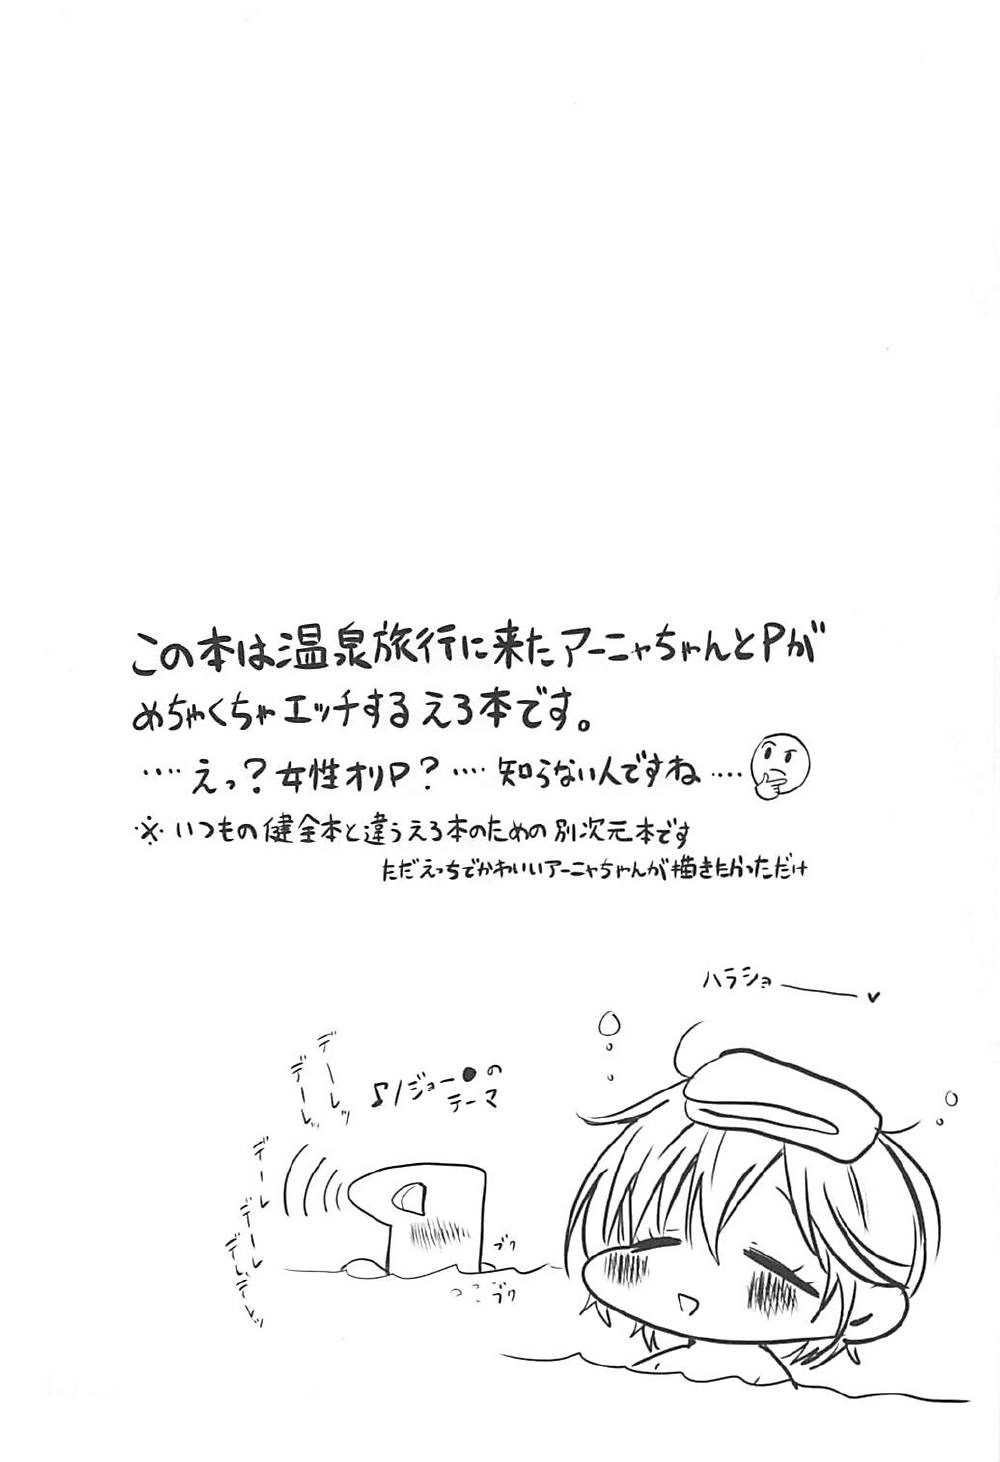 この本は温泉旅行に来たアーニャちゃんとPが
めちゃくちゃエッチするえろ本です。
‥‥えっ？女性オリP？‥‥知らない人ですね‥‥
※いつもの健全本と違うえろ本のための別次元本です
ただえっちでかわいいアーニャちゃんが描きたかっただけ
ハラショー♥
♪ジョー●の
テーマ
デーレッ
デーレッ
デーレ
デーレ
デレデレッ
ブク
ブク